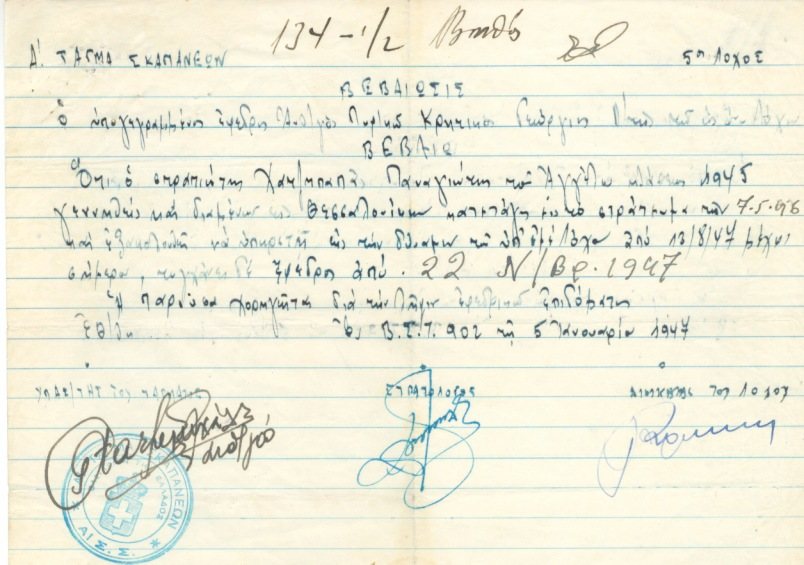 134 - 1/2 Βοηθός
Δ' ΤΑΓΜΑ ΣΚΑΠΑΝΕΩΝ 5ος ΛΟΧΟΣ
ΒΕΒΑΙΩΣΙΣ
Ο υπογεγραμμένος Έφεδρος Γεώργιος
ΒΕΒΑΙΩ
Ότι ο στρατιώτης Χατζηπαπάς Παναγιώτης του Αγγέλου κλάσεως 1945
γεννηθείς και διαμένων εις Θεσσαλονίκην κατετάγη εις το στράτευμα την 7.5.46
και εξακολουθή να υπηρετή εις την δύναμιν του υπ' εμέ Λόχου από 13/8/47 μέχρι
σήμερον, τυγχάνει δε έφεδρος από. 22 Ν/ΒΡ. 1947
Η παρούσα χορηγείται διά την λήψιν εφεδρικού επιδόματος
Εδόθη Εν Β.Σ.Τ. 902 τη 5 Ιανουαρίου 1947
Ο Ο Ο
ΥΠΑΣ/ΤΗΣ ΤΟΥ ΤΑΓΜΑΤΟΣ ΣΤΡΑΤΟΛΟΓΟΣ ΔΙΟΙΚΗΤΗΣ ΤΟΥ ΛΟΧΟΥ
ΣΚΑΠΑΝΕΩΝ
ΕΛΛΑΔΟΣ
ΑΙ Σ. Σ.